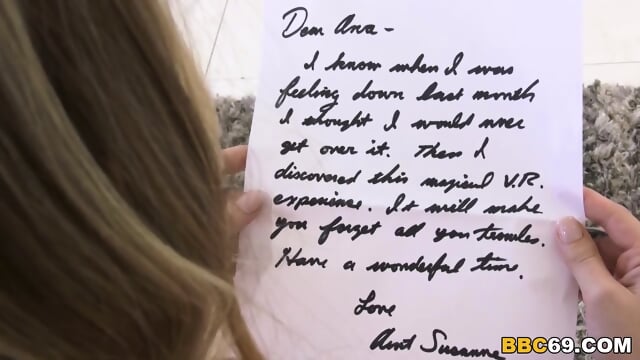 Dear Ana -
I know when I was
feeling down last month
I thought I would never
get over it. Then I
discovered this magical V.R.
experience. It will make
you forget all your troubles.
Have a wonderful time.
Love
Aunt Susanne
BBC69.COM